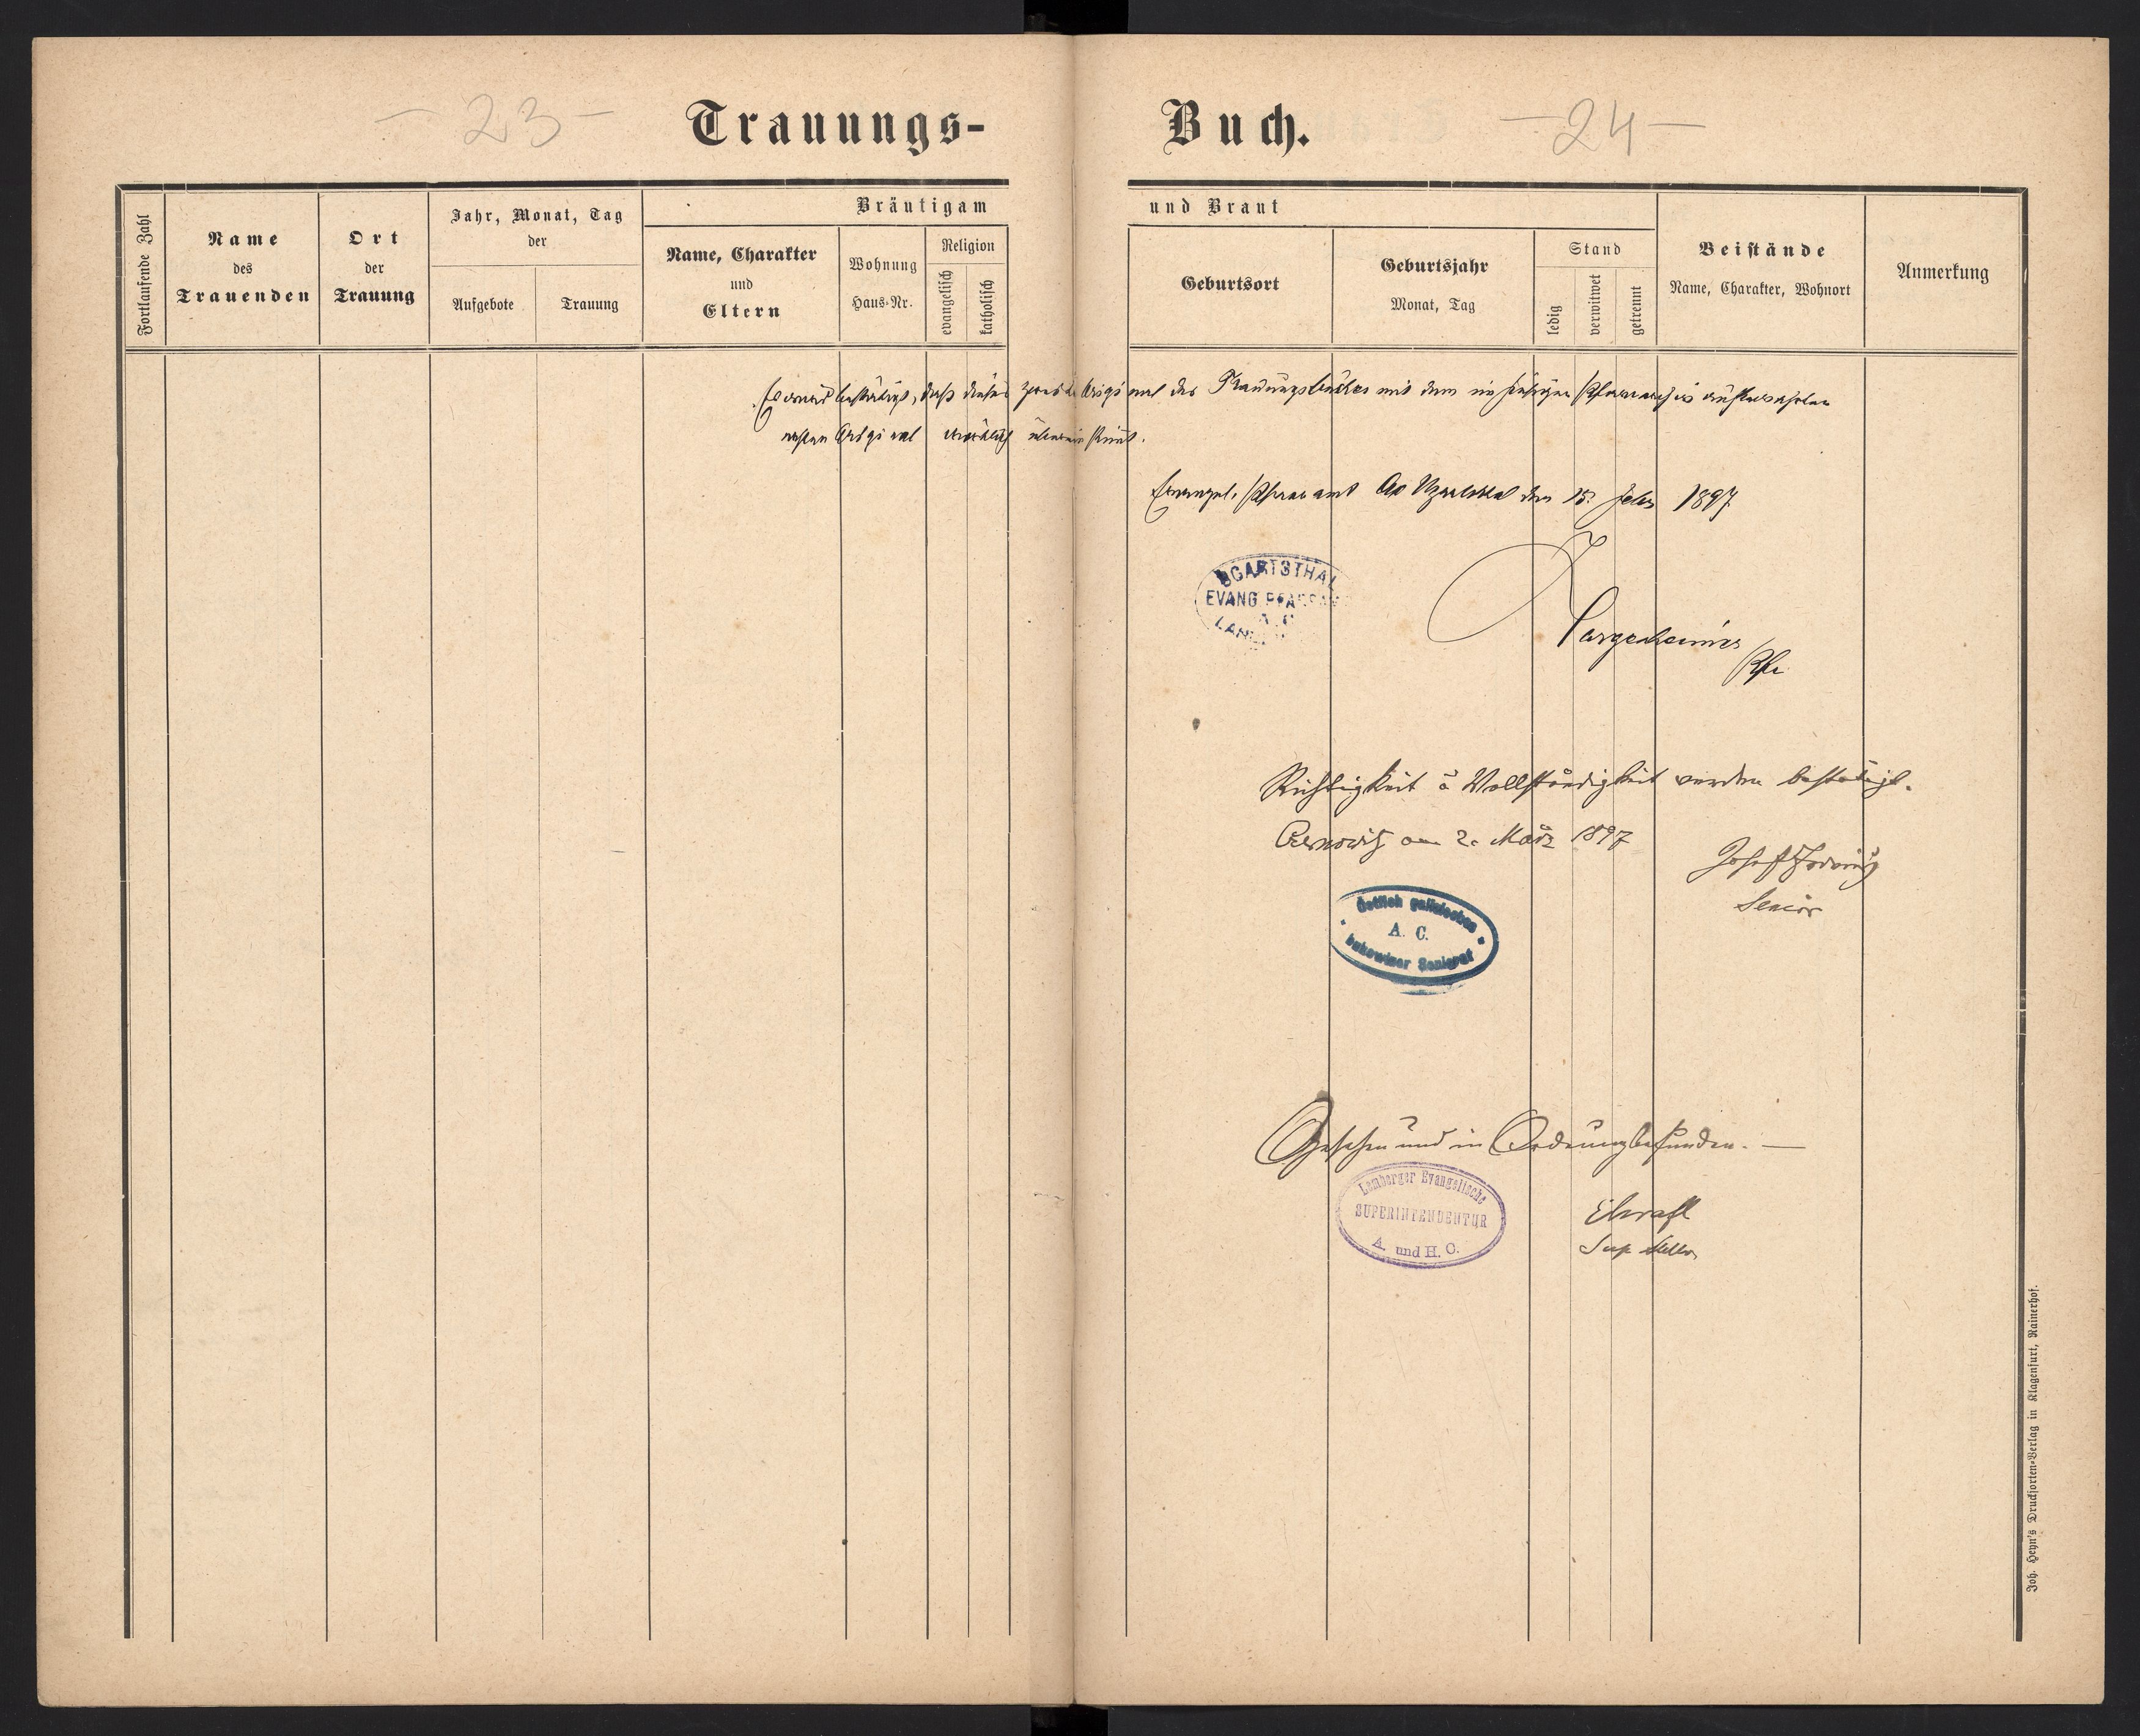 - 23 -
Trauungs-
Buch.
- 24 -
Fortlaufende Zahl
Name
des
Trauenden
Ort
der
Trauung
Jahr, Monat, Tag
der
Aufgebote
Trauung
Bräutigam
Name, Charakter
und
Eltern
Wohnung
Haus-Nr.
Religion
evangelisch
katholisch
und Braut
Geburtsort
Geburtsjahr
Monat, Tag
Stand
ledig
verwitwet
getrennt
Beistände
Name, Charakter, Wohnort
Anmerkung
Es wird bestätigt, daß dieses zweite Original des Trauungsbuches mit dem im hiesigen Pfarrarchiv aufbewahrten
ersten Original übereinstimmt.
Evangel. Pfarramt Ugartsthal den 15. 1897
UGARTSTHAL
EVANG PFARRAMT
A. C.
Pfr
Richtigkeit u Vollständigkeit werden bestätigt.
Czernowitz am 2. März 1897
Josef
Senior
Östlich galizisches
A. C.
bukowiner Seniorat
Gesehen und in Ordnung befunden. —
Lemberger Evangelische
SUPERINTENDENTUR
A. und H. C.
Sup Stellv
Joh. Heyn's Drucksorten-Verlag in Klagenfurt, Rainerhof.